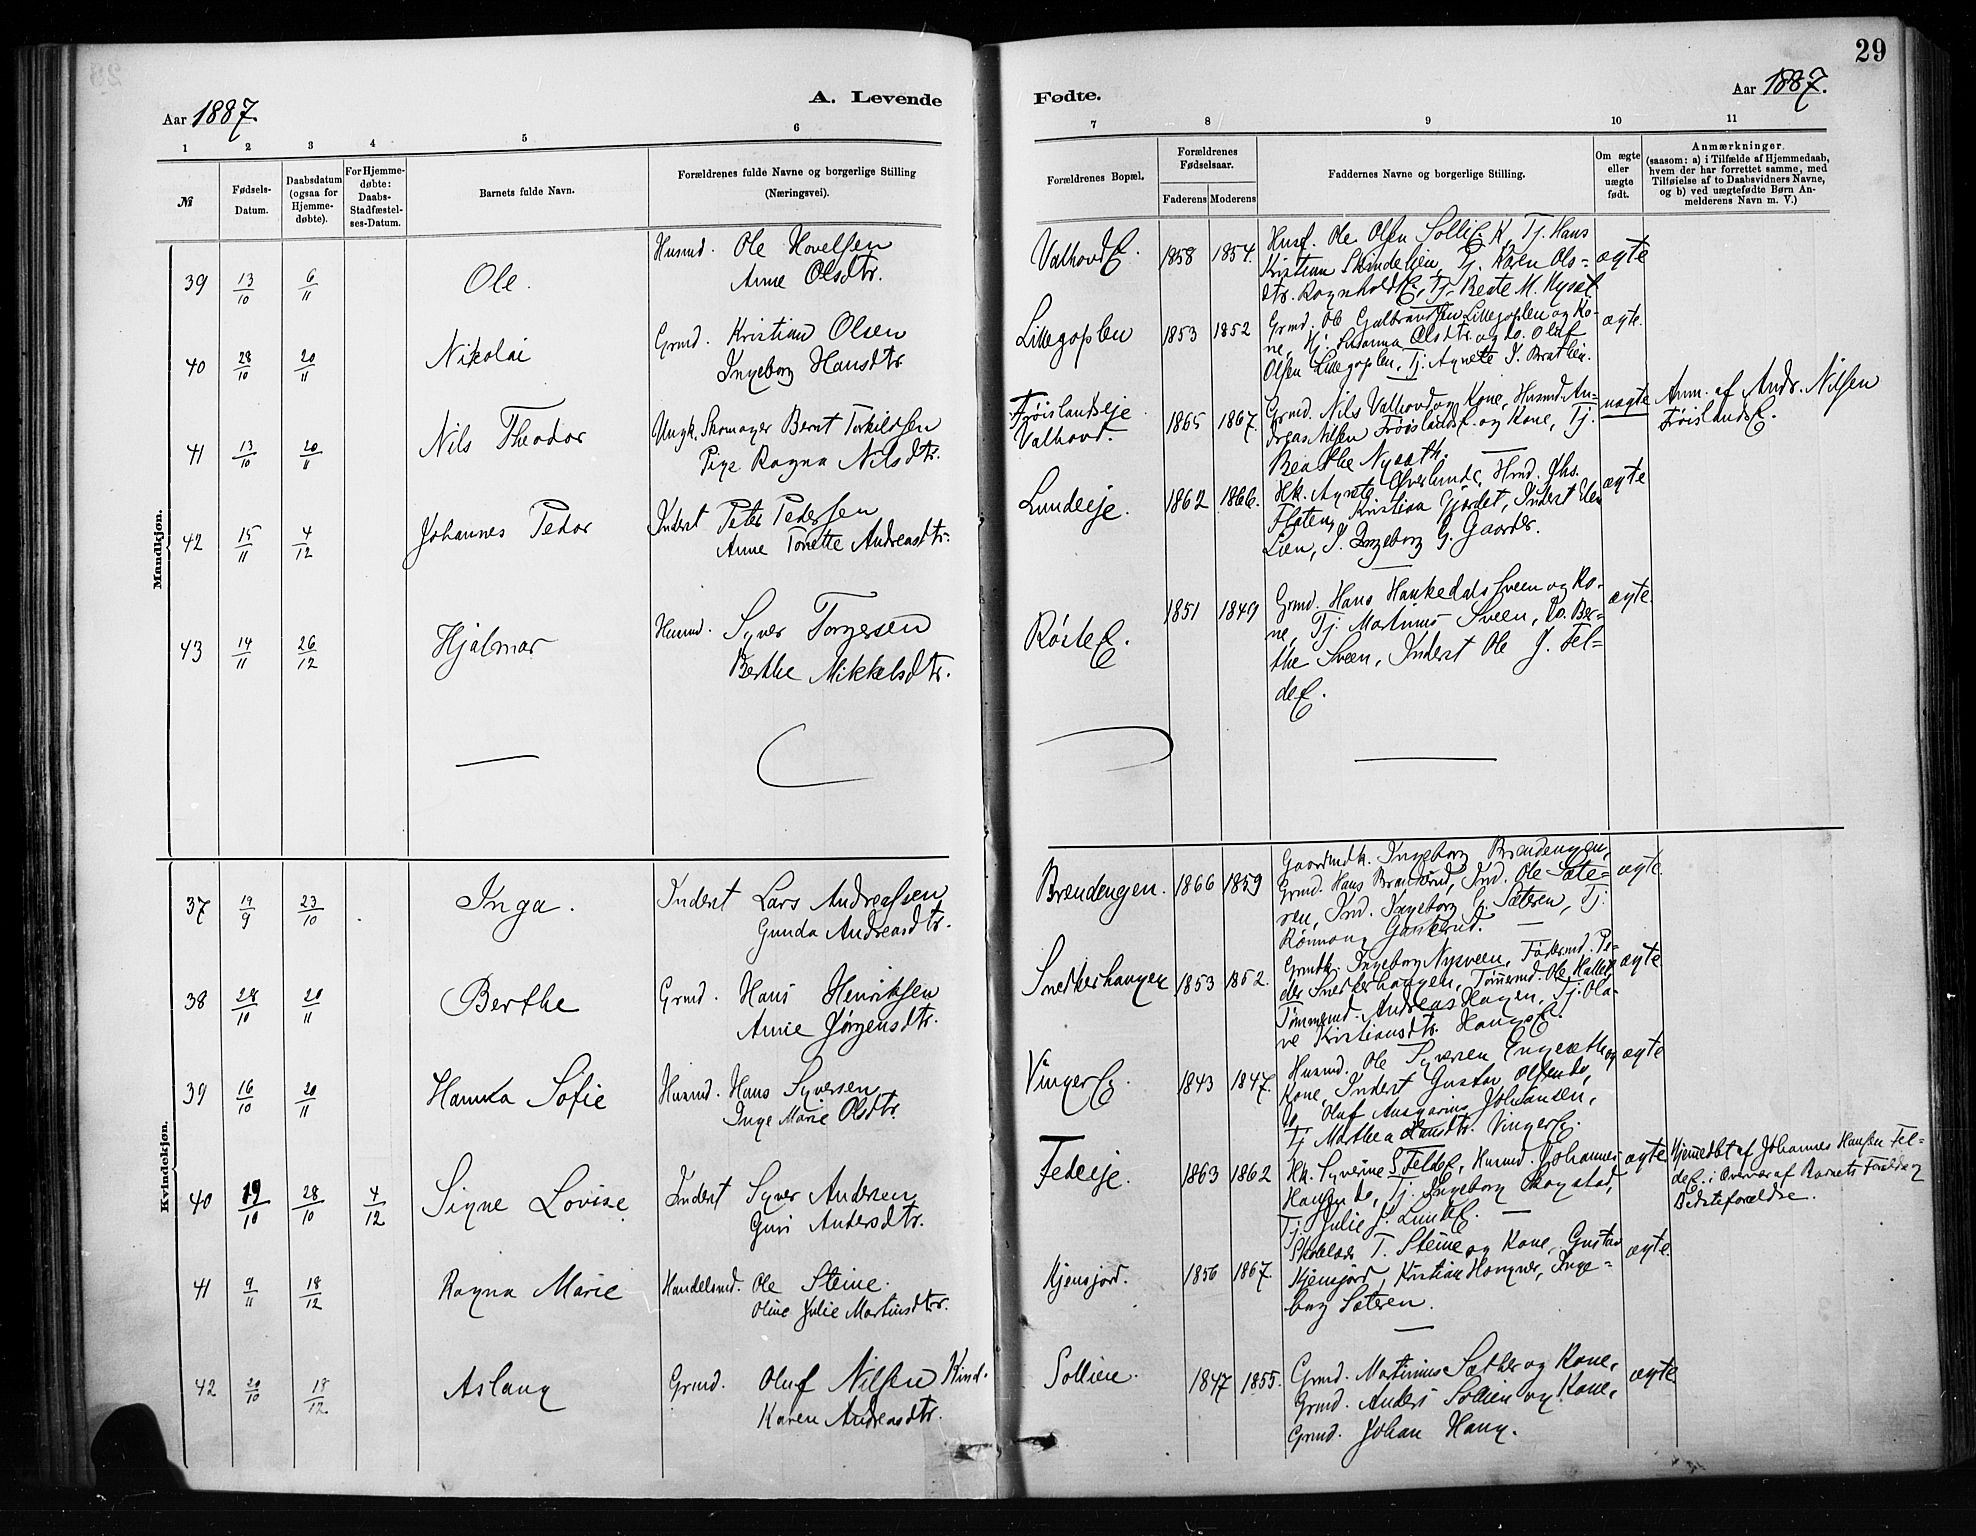 29
Aar 1887. A. Levende Fødte. Aar 1887.
1 2 3 4 5 6 7 8 9 10 11
№
Fødsels-
Datum.
Daabsdatum
(ogsaa for
Hjemme-
døbte).
For Hjemme-
døbte:
Daabs-
Stadfæstel-
ses-Datum.
Barnets fulde Navn.
Forældrenes fulde Navne og borgerlige Stilling
(Næringsvei).
Forældrenes Bopæl.
Forældrenes
Fødselsaar.
Faderens Moderens
Faddernes Navne og borgerlige Stilling.
Om ægte
eller
uægte
født.
Anmærkninger.
(saasom: a) i Tilfælde af Hjemmedaab,
hvem der har forrettet samme, med
Tilføielse af to Daabsvidners Navne,
og b) ved uægtefødte Børn An-
melderens Navn m. V.)
Mandkjøn.
39 13/10 6/11 Ole. Husmd. Ole Hovelsen
Anne Olsdtr.
ValhovdE. 1858 1854. Husf. Ole Olsen SolliE K, Tj. Hans
Kristian Skindelien, Tj. Karen Ols-
dtr. RagnholdtE, Tj. Beate M. Nysæt
ægte
40 28/10 20/11 Nikolai Grmd. Kristian Olsen
Ingeborg Hansdtr
Lillegoplen 1853 1852 Grmd. Ole Gulbrandsen Lillegoplen og Ko-
ne, Hj. Susanna Olsdtr. og do. Oluf
Olsen Lillegoplen, Tj. Agnete J. Bratlien.
ægte.
41 13/10 20/11 Nils Theodor Ungk. Skomager Bernt Torkildsen
Pige Ragna Nilsdtr.
Frøislandseje
Valhovd.
1865 1867. Grmd. Nils Valhovd og Kone, Husmd. An-
dreas Nilsen FrøislandsE. og Kone, Tj.
Beathe Nysæth.
uægte Anm. af Andr. Nilsen
FrøislandsE.
42 15/11 4/12 Johannes Pedor Inderst Peter Pedersen
Anne Tonette Andreasdtr.
Lundeeje. 1862 1866. Hk. Agnete Øverlunde, Hmd. Johs.
Flaten, Kristian Gjørdet, Inderst Elen
Lien, J. Ingeborg G. Gaarder.
ægte
43 14/11 26/12 Hjalmar Husmd. Syver Torgersen
Berthe Mikkelsdtr.
RösteE. 1851 1849 Grmd. Hans Haukedals Sveen og Ko-
ne, Tj. Martinus Sveen, Do. Ber-
the Sveen, Inderst Ole J. Fel-
deE.
ægte
Kvindekjøn.
37 19/9 23/10 Inga. Inderst Lars Andreassen
Gunda Andreasdtr.
Brændengen. 1866 1859 Gaardmdk. Ingeborg Brændengen,
Grmd. Hans Brænderud, Ind. Ole Sæte-
ren, Ind. Ingeborg J. Sæteren, Tj.
Rönnaug Gaukerud.
ægte.
38 28/10 20/11 Berthe Grmd. Hans Henriksen
Anne Jørgensdtr.
Snekkerhaugen 1853 1852. Grmdk. Ingeborg Nysveen, Födermd. Pe-
der Snekkerhaugen, Tømmermd. Ole Kallerud
Tømmermd. Andreas Hagen, Tj. Ola-
ve Kristiansdtr. HaugsE.
ægte
39 16/10 20/11 Hanna Sofie Husmd. Hans Syversen
Inge Marie Olsdtr.
VingerE. 1843 1847. Husmd. Ole Syversen Engesæth og
Kone, Inderst Gustav Olsen do,
do. Oluf Ansgarius Johansen,
Tj. Marthea Hansdtr. VingerE.
ægte
40 19/10 28/10 4/12 Signe Lovise Inderst Syver Andersen
Guri Andersdtr.
Feldeeje. 1863 1862 Hk. Syverine S. FeldeE, Husmd. Johannes
Hansen do, Tj. Ingeborg Skogstad,
Tj. Julie J. LundE.
ægte Hjemmedbt af Johannes Hansen Fel-
deE. i Overvær af Barnets Forældre og
Bedsteforældre.
41 9/11 18/12 Ragna Marie Handelsmd. Ole Steine.
Oline Julie Martinsdtr.
Kjensjord. 1856 1867. Skolelær. T. Steine og Kone, Gustav
Kjensjord, Kristian Haugner, Inge-
borg Sæteren.
ægte.
42 20/10 18/12 Aslaug Grmd. Oluf Nilsen Kind.
Karen Andreasdtr.
Sollien. 1847 1855. Grmd. Martinius Sæther og Kone,
Grmd. Anders Sollien og Kone,
Grmd. Johan Haug.
ægte